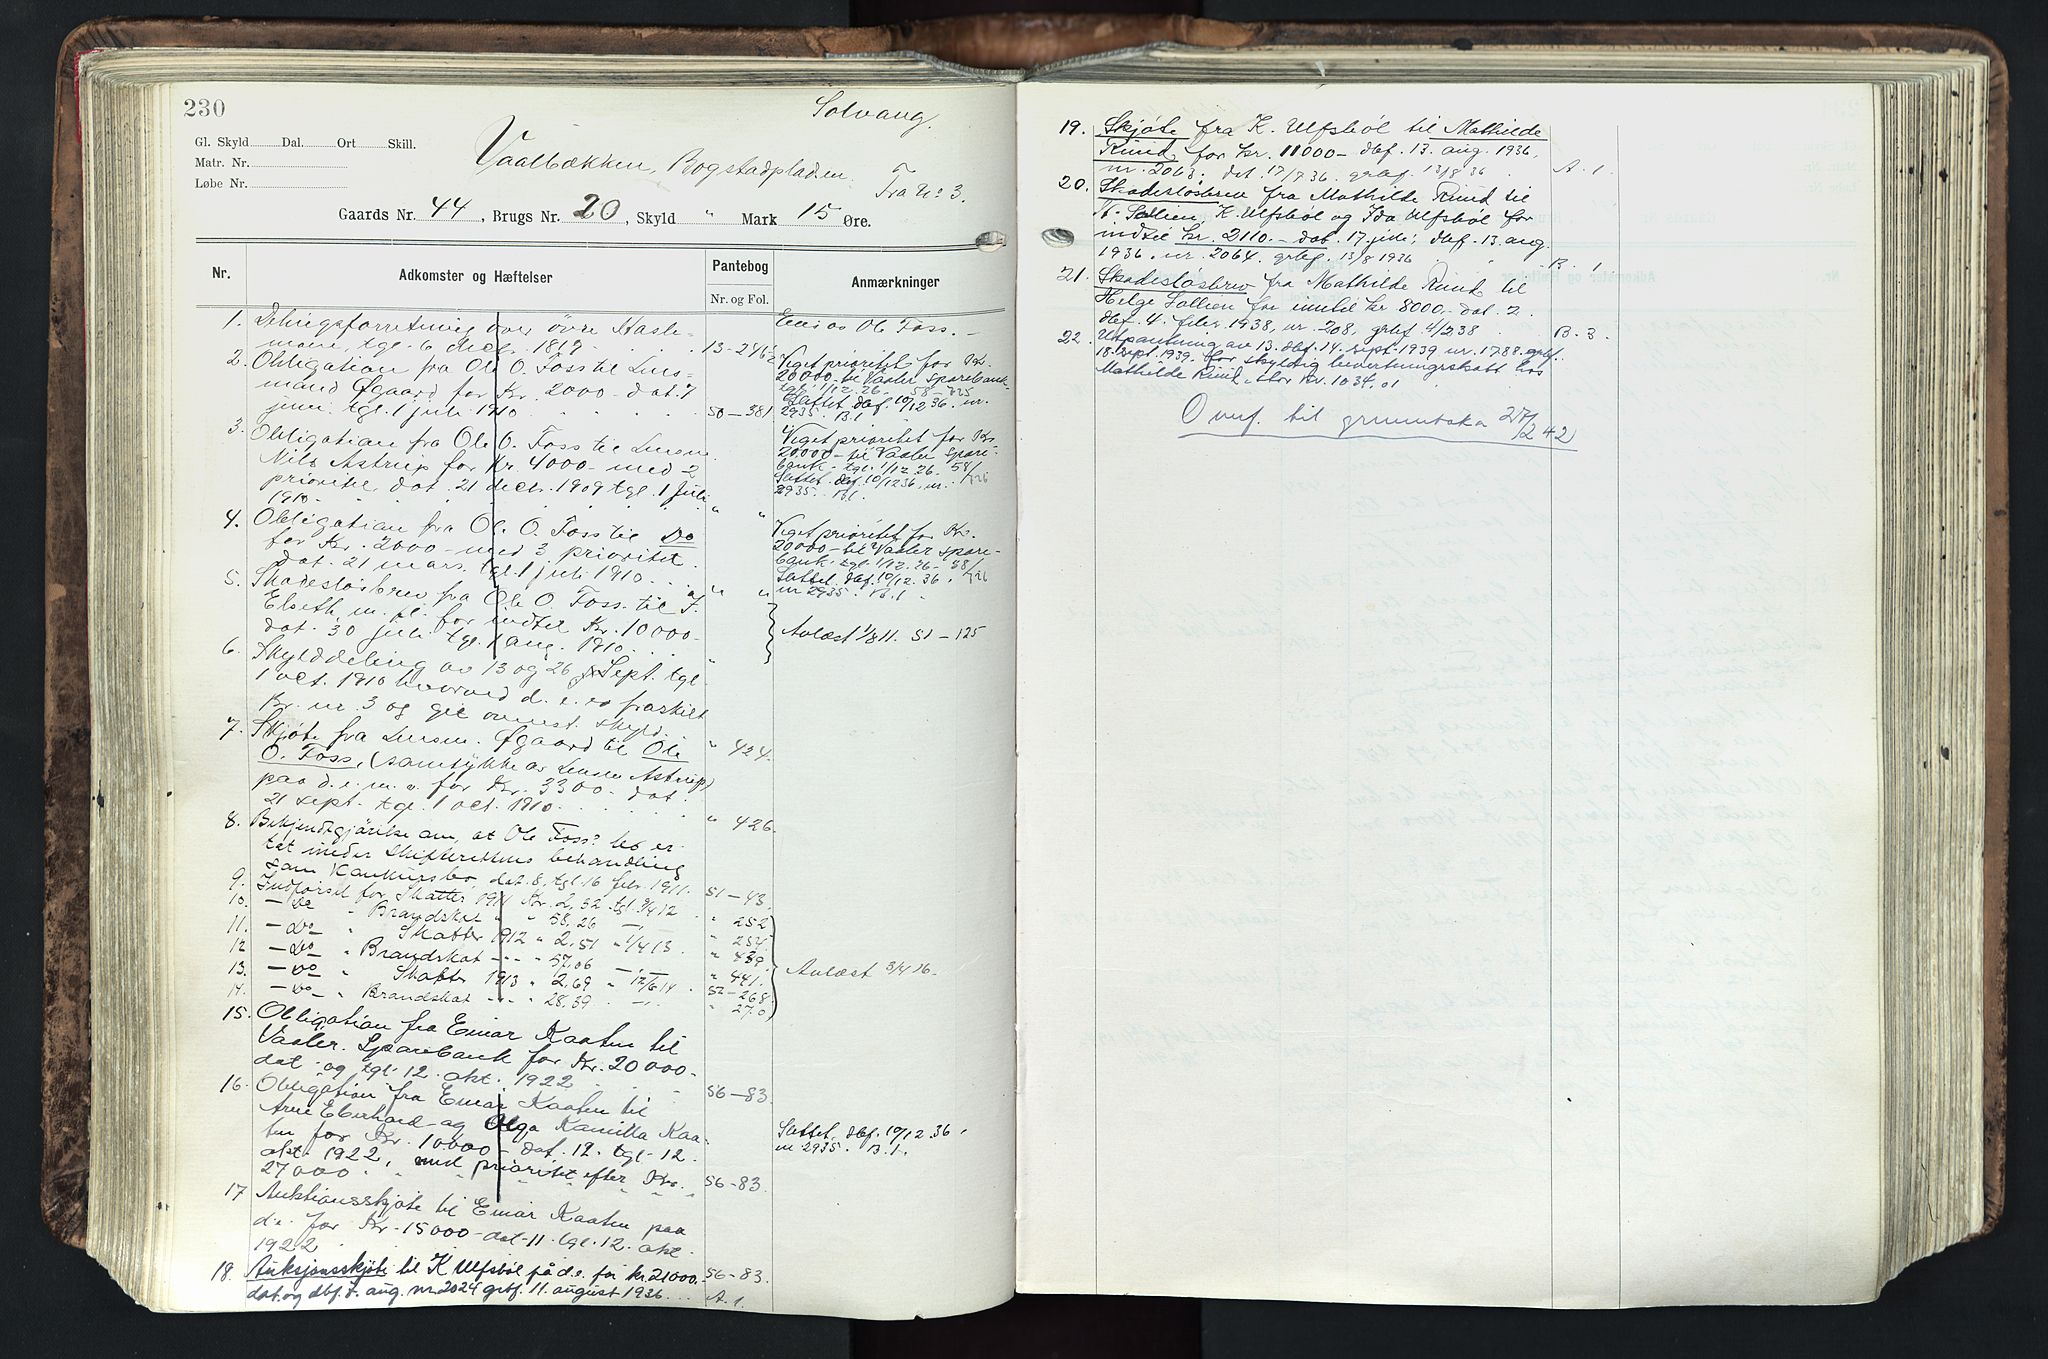 230
Solvang.
Gl. Skyld Dal. Ort Skill.
Matr. Nr.
Løbe Nr.
Vaalbækken, Bogstadpladsen.
Fra No 3.
Gaards Nr. 44, Brugs Nr. 20, Skyld " Mark 15 Øre.
Nr.
Adkomster og Hæftelser
Pantebog
Nr. og Fol.
Anmærkninger
1. Delingsforretning over øvre Kasle-
moen, tgl. 6 dec. 1819 13-246
Eies av Ole Foss.
2. Obligation fra Ole O. Foss til Lens-
mand Øgaard for Kr. 2000 dat. 7
juni, tgl. 1 juli 1910 50-381
Viget prioritet for Kr.
20000 til Vaaler sparebank
tgl. 1/12.26. 58-725
Slettet dbf. 10/12 36. nr.
2935. B.1
3. Obligation fra Ole O. Foss til Lensm.
Nils Astrup for Kr. 4000 med 2
prioritet, dat. 21 decbr. 1909 tgl. 1 juli
1910 " "
Viget prioritet for Kr.
20000 til Vaaler spare-
bank tgl. 1/12 26. 58/
Slettet dbf. 10/12 36, nr. 726
2935. B.1.
4. Obligation fra Ole O. Foss til Do
for Kr. 2000 med 3 prioritet.
dat. 21 mars, tgl. 1 juli 1910 " "
Viget prioritet for Kr.
20000 til Vaaler spare-
bank tgl. 1/12.26 58/
Slettet dbf. 10/12 36, 726
nr 2935. B.1.
5. Skadesløsbrev fra Ole O. Foss til J.
Elseth m. fl. for indtil Kr. 10000
dat. 30 juli tgl. 1 aug. 1910
Avlæst 1/8 11. 51-125
6. Skylddeling av 13 og 26 Sept. tgl.
1 oct. 1910 hvorved d. e. er fraskilt
Br. nr. 3 og git ovenst. skyld. " 424.
7. Skjøte fra Lensm. Øgaard til Ole
O. Foss, (samtykke av Lensm Astrup)
paa d. e. m. v. for Kr. 3300 dat.
21 sept. tgl. 1 oct. 1910 " 426.
8. Bekjendtgjørelse om, at Ole Foss' bo er
tat under skifterettens behandling
som Konkursbo dat. 8, tgl. 16 febr. 1911. 51-43.
9. Indførsel for Skatter 1911 Kr. 2,52 tgl. 9/4 12 " 252
10. - Do " Brandskat " " 58,26 " 254.
11. - Do " Skatter 1912 " 2,51 " 1/4 13 " 439
12 - Do " Brandskat " " 57,06 " 441.
13. - Do " Skatter 1913 " 2,69 " 12/6 14 52-268
14. - Do " Brandskat " " 28,39 " 270
Avlæst 3/4 16.
15. Obligation fra Einar Kaaten til
Vaaler Sparebank for Kr. 20000.
dat. og tgl. 12. okt. 1922 56-83.
16. Obligation fra Einar Kaaten til
Arne Eberhard og Olga Kamilla Kaa-
ten for Kr. 10000 dat. 12. tgl. 12.
okt. 1922, med prioritet efter Kr.
27000. 56-83.
Slettet. dbf. 10/12.36,
nr 2935. B.1.
17 Auktionsskjøte til Einar Kaaten paa
d.e. for Kr. 15000 dat. 11. tgl. 12. okt.
1922 56-83.
18. Auksjonsskjøte til K Ulfsbøl på d.e. for kr. 21000.
dat. og dbf. 7. aug. nr. 2024 grbf. 11. august 1936 A.1.
19. Skjøte fra K. Ulfsbøl til Mathilde
Rund for kr. 11000 dbf. 13. aug. 1936,
nr. 2063, dat. 17/7 36. grbf. 13/8 36 A. 1.
20. Skadesløsbrev fra Mathilde Rund til
K. Ulfsbøl og Ida Ulfsbøl for
indtil kr. 2110. dat. 17. juli, dbf. 13. aug.
1936, nr. 2064. grbf. 13/8 1936 B. 1
21. Skadesløsbrev fra Mathilde Rund til
Helge Sollien for inntil kr 8000, dat. 2.
dbf. 4. febr. 1938, nr. 208, grbf. 4/2 38 B. 3.
22. Utpantning av 13. dbf. 14. sept. 1939 nr. 1788. grbf.
18. sept. 1939. for skyldig bevertningsskatt hos
Mathilde Rund, stor kr. 1034,01
Overf. til grunnboka 27/2 42